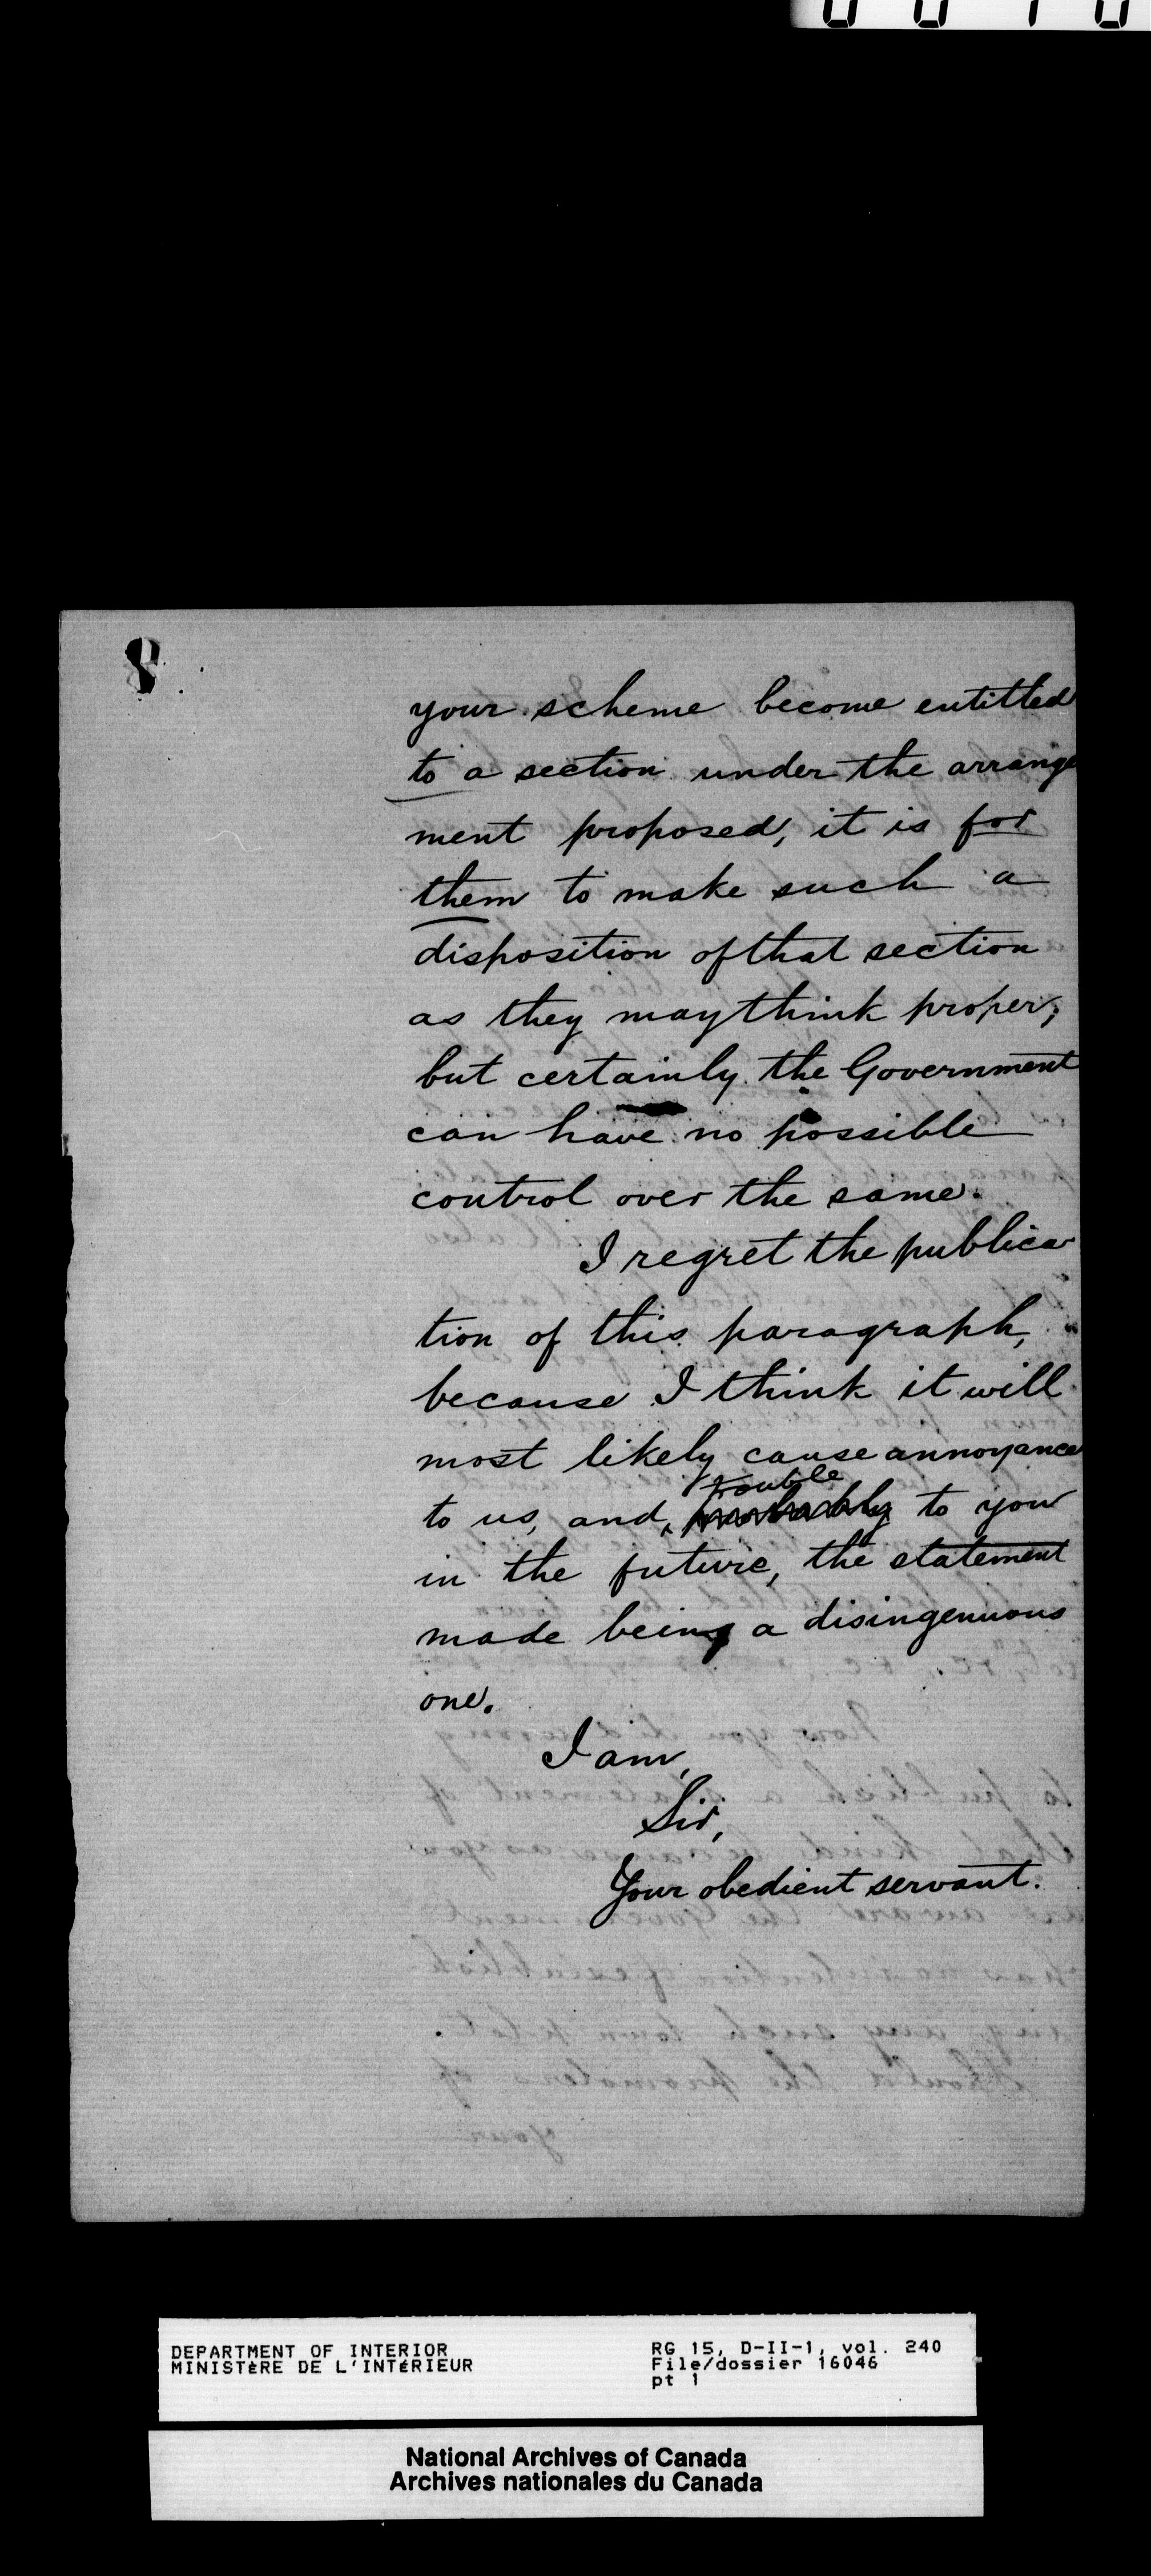 8.
your scheme become entitled
to a section under the arrange
ment proposed, it is for
them to make such a
disposition of that section
as they may think proper;
but certainly the Government
can have no possible
control over the same.
I regret the publica
tion of this paragraph,
because I think it will
most likely cause annoyance
trouble
to us, and, probably to you
in the future, the statement
made being a disingenuous
one.
I am,
Sir,
Your obedient servant.
DEPARTMENT OF INTERIOR
MINISTÈRE DE L'INTÉRIEUR
RG 15, D-II-1, vol. 240
File/dossier 16046
pt 1
National Archives of Canada
Archives nationales du Canada